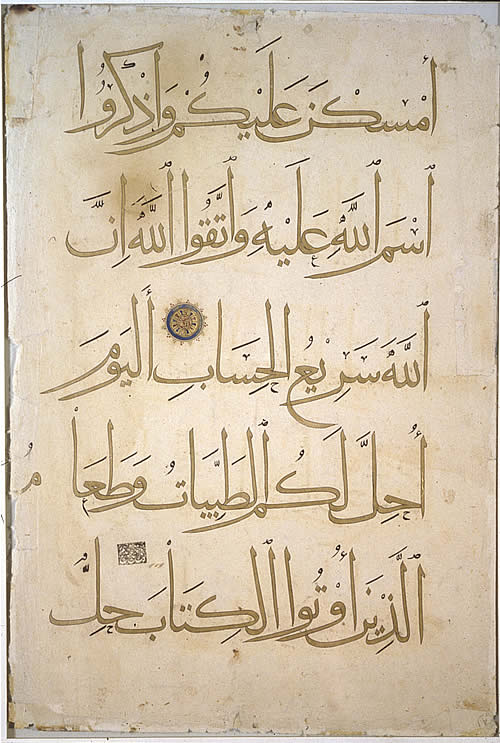 أَمْسَكْنَ عَلَيْكُمْ وَاذْكُرُوا
اسْمَ اللَّهِ عَلَيْهِ وَاتَّقُوا اللَّهَ إِنَّ
اللَّهَ سَرِيعُ الْحِسَابِ الْيَوْمَ
أُحِلَّ لَكُمُ الطَّيِّبَاتُ وَطَعَامُ
الَّذِينَ أُوتُوا الْكِتَابَ حِلٌّ